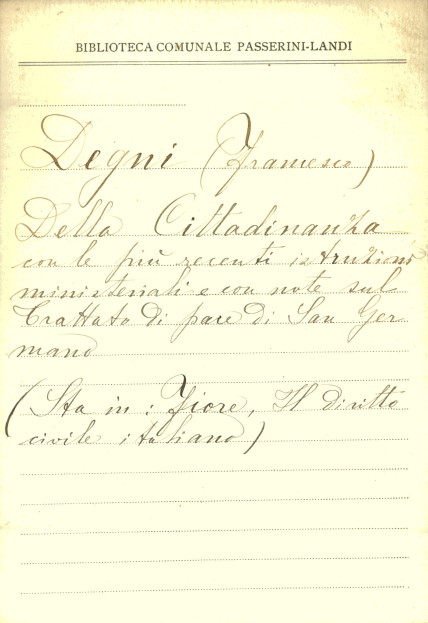 BIBLIOTECA COMUNALE PASSERINI-LANDI
Degni (Francesco)
Della Cittadinanza
con le più recenti istruzioni
ministeriali e con note sul
Trattato di pace di San Ger
mano
(Sta in: Fiore, Il diritto
civile italiano)